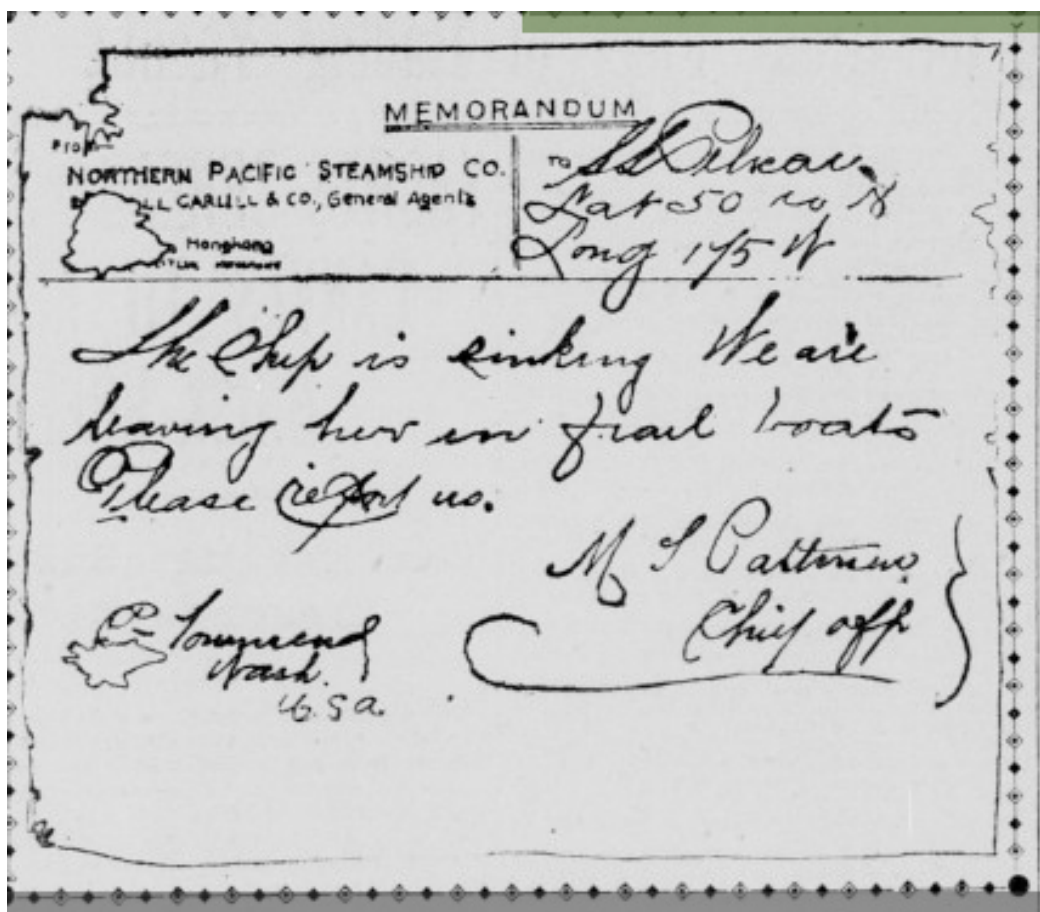 MEMORANDUM
From
NORTHERN PACIFIC STEAMSHIP CO.
LL CARLILL & CO., General Agents
Hongkong
To SS Pelican
Lat 50 N
Long 175 W
The Ship is sinking We are
leaving her in frail boats
Please report us.
M S Pattmen
Chief off
P Townsend
Wash.
U.S.A.